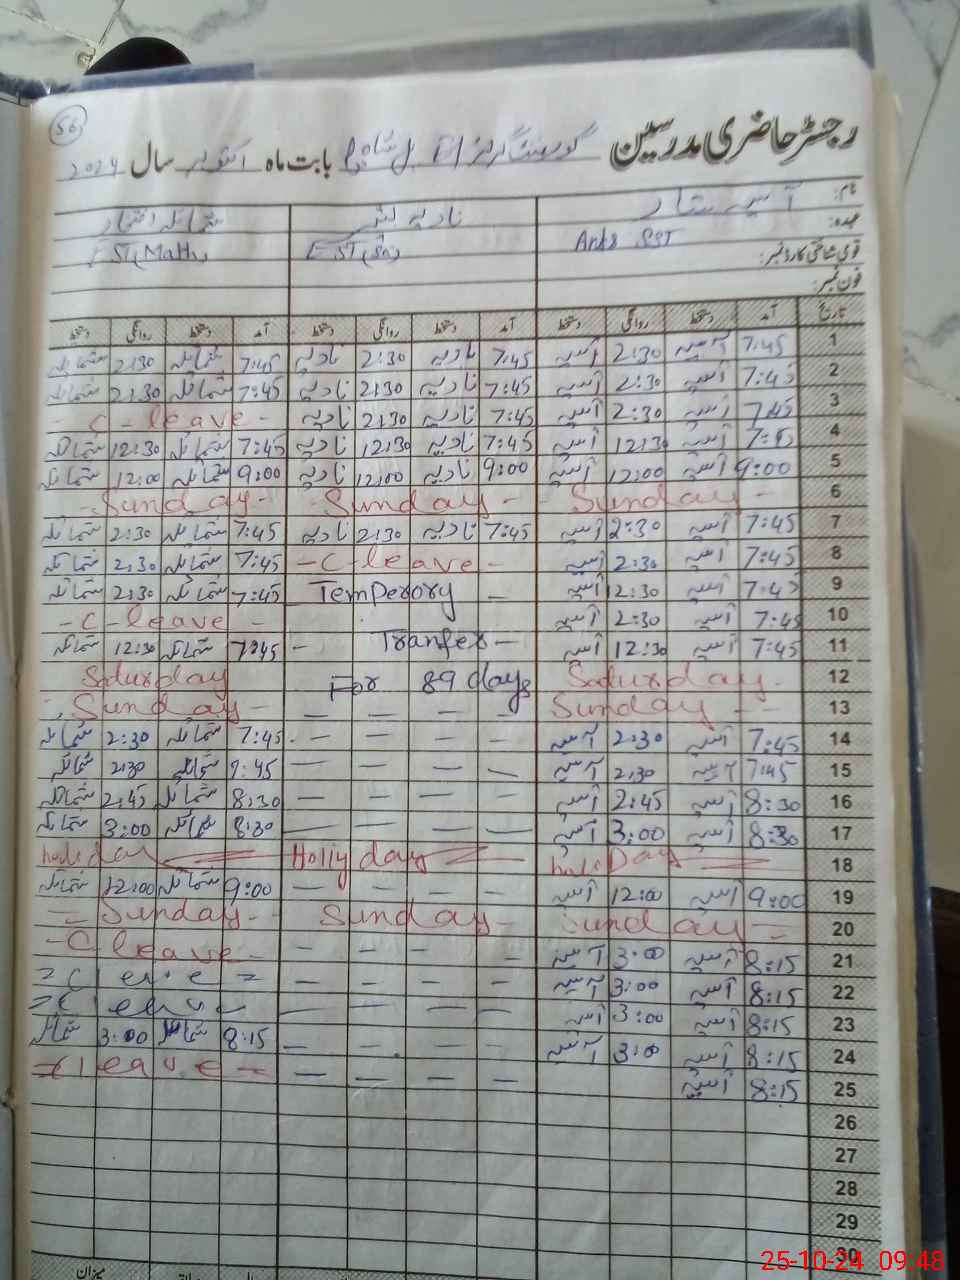 56
رجسٹر حاضری مدرسین گورنمنٹ گرلز بابت ماہ اکتوبر سال 2024
نام: آسیہ ستار نادیہ شمائلہ
عہدہ: Arts SST EST(Sc) EST(Math)
قومی شناختی کارڈ نمبر:
فون نمبر:
تاریخ آمد دستخط روانگی دستخط آمد دستخط روانگی دستخط آمد دستخط روانگی دستخط
1 7:45 آسیہ 2:30 آسیہ 7:45 نادیہ 2:30 نادیہ 7:45 شمائلہ 2:30 شمائلہ
2 7:45 آسیہ 2:30 آسیہ 7:45 نادیہ 2:30 نادیہ 7:45 شمائلہ 2:30 شمائلہ
3 7:45 آسیہ 2:30 آسیہ 7:45 نادیہ 2:30 نادیہ - C - leave -
4 7:45 آسیہ 12:30 آسیہ 7:45 نادیہ 12:30 نادیہ 7:45 شمائلہ 12:30 شمائلہ
5 9:00 آسیہ 12:00 آسیہ 9:00 نادیہ 12:00 نادیہ 9:00 شمائلہ 12:00 شمائلہ
6 Sunday - Sunday - Sunday -
7 7:45 آسیہ 2:30 آسیہ 7:45 نادیہ 2:30 نادیہ 7:45 شمائلہ 2:30 شمائلہ
8 7:45 آسیہ 2:30 آسیہ - C - leave - 7:45 شمائلہ 2:30 شمائلہ
9 7:45 آسیہ 12:30 آسیہ Temperory - 7:45 شمائلہ 2:30 شمائلہ
10 7:45 آسیہ 2:30 آسیہ - C - leave -
11 7:45 آسیہ 12:30 آسیہ - Tranfer - 7:45 شمائلہ 12:30 شمائلہ
12 Saturday - For 89 days Saturday
13 Sunday - - - - - Sunday -
14 7:45 آسیہ 2:30 آسیہ - - - - 7:45 شمائلہ 2:30 شمائلہ
15 7:45 آسیہ 2:30 آسیہ - - - - 7:45 شمائلہ 2:30 شمائلہ
16 8:30 آسیہ 2:45 آسیہ - - - - 8:30 شمائلہ 2:45 شمائلہ
17 8:30 آسیہ 3:00 آسیہ - - - - 8:30 شمائلہ 3:00 شمائلہ
18 holiDay Holiy day holi day
19 9:00 آسیہ 12:00 آسیہ - - - - 9:00 شمائلہ 12:00 شمائلہ
20 Sunday - Sunday - Sunday -
21 8:15 آسیہ 3:00 آسیہ - - - - - C leave -
22 8:15 آسیہ 3:00 آسیہ - - - -
23 8:15 آسیہ 3:00 آسیہ - - - -
24 8:15 آسیہ 3:00 آسیہ - - - - 8:15 شمائلہ 3:00 شمائلہ
25 8:15 آسیہ - - - - leave -
26
27
28
29
30
میزان
25-10-24 09:48